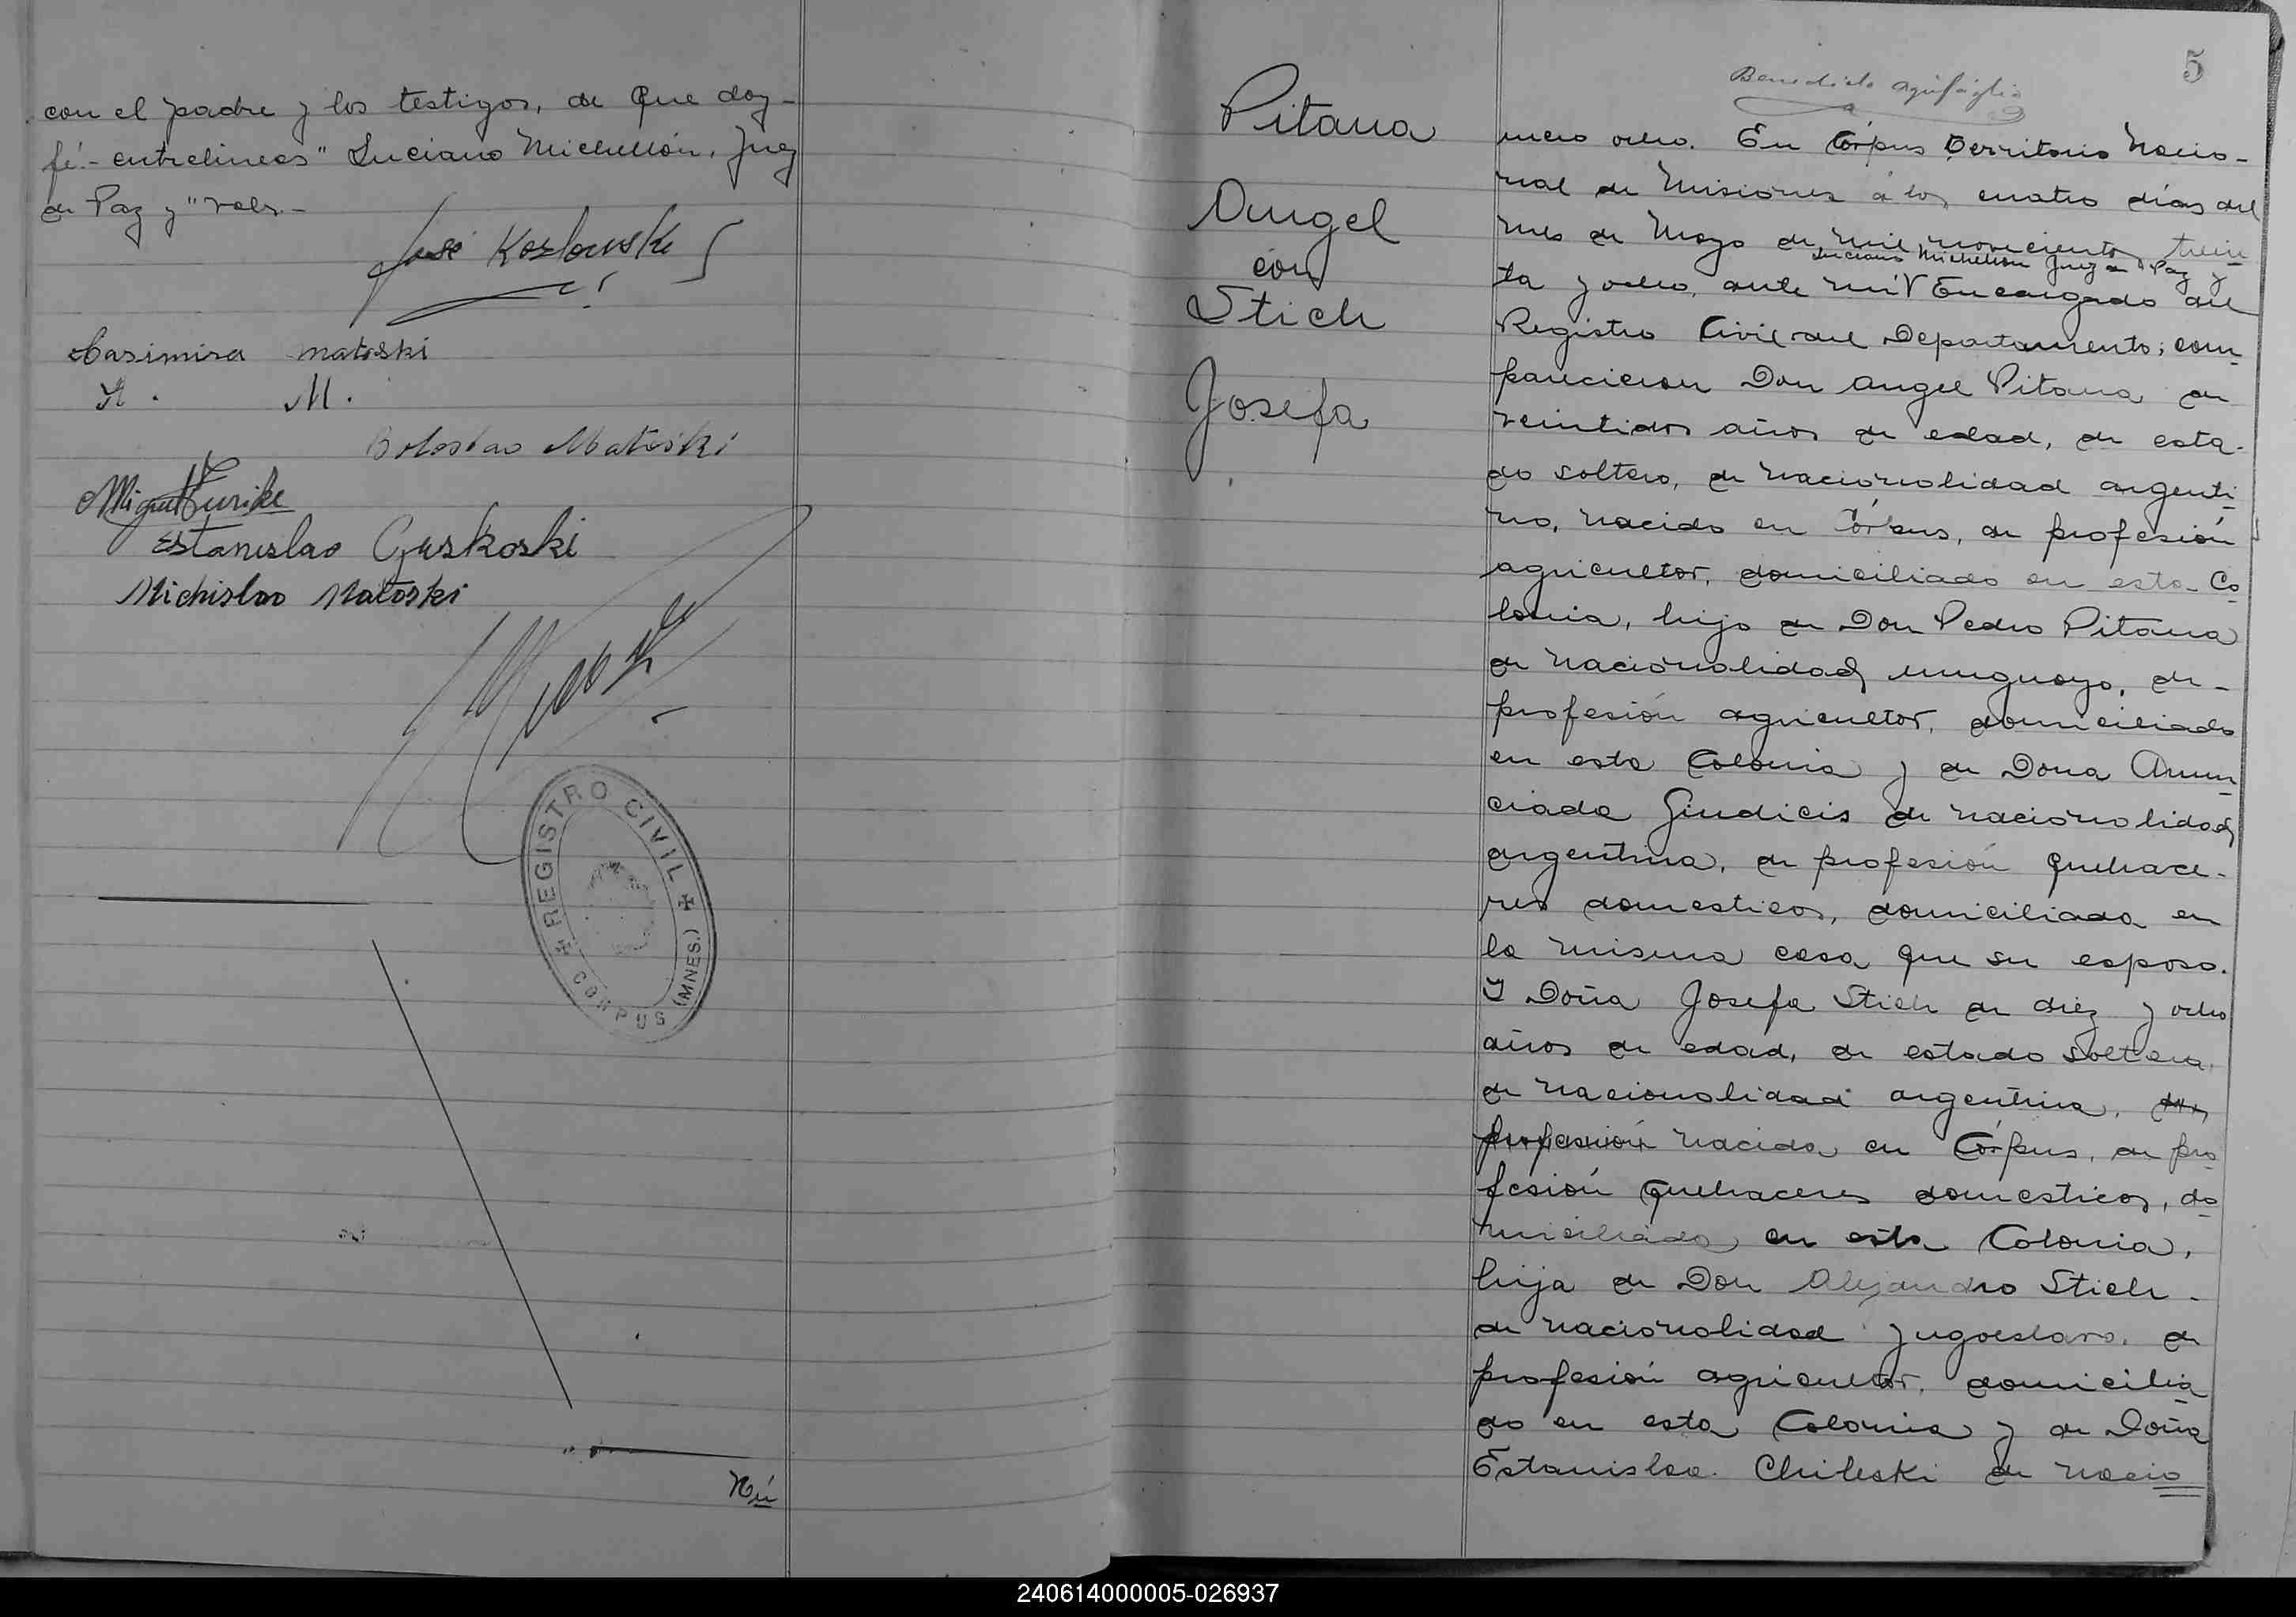 con el padre y los testigos, de que doy-
fé.- entrelineas" Luciano Michellón, Juez
de Paz y" vale.-
José Kozlouski
Casimira matoski
M.
Boloslao Matoski
Miguel
Estanislao Guskoski
Michislao Matoski
REGISTRO CIVIL
CORPUS (MNES.)
Nú
5
Benedicto
Pitana
Angel
con
Stich
Josefa
mero ocho. En Córpus Territorio Nacio-
nal de Misiones á los cuatro días del
mes de Mayo de mil novecientos trein
Luciano Michellón Juez de Paz y
ta y ocho, ante mí Encargado del
Registro Civil del Departamento; com
parecieron Don Angel Pitana de
veintidos años de edad, de esta-
do soltero, de nacionalidad argenti
no, nacido en Córpus, de profesión
agricultor, domiciliado en esta Co
lonia, hijo de Don Pedro Pitana
de nacionalidad uruguayo, de-
profesión agricultor, domiciliado
en esta Colonia y de Dona Anun
ciada Giudicis de nacionalidad
argentina, de profesión quehace-
res domesticos, domiciliada en
la misma casa que su esposo.
Y Doña Josefa Stich de diez y ocho
años de edad, de estado soltera,
de nacionalidad argentina, de
profesión nacida en Córpus, de pro
fesión quehaceres domesticos, do
miciliada en esta Colonia,
hija de Don Alejandro Stich-
de nacionalidad yugoeslavo, de
profesión agricultor, domicilia
do en esta Colonia y de Doña
Estanislaa Chileski de nacio
240614000005-026937